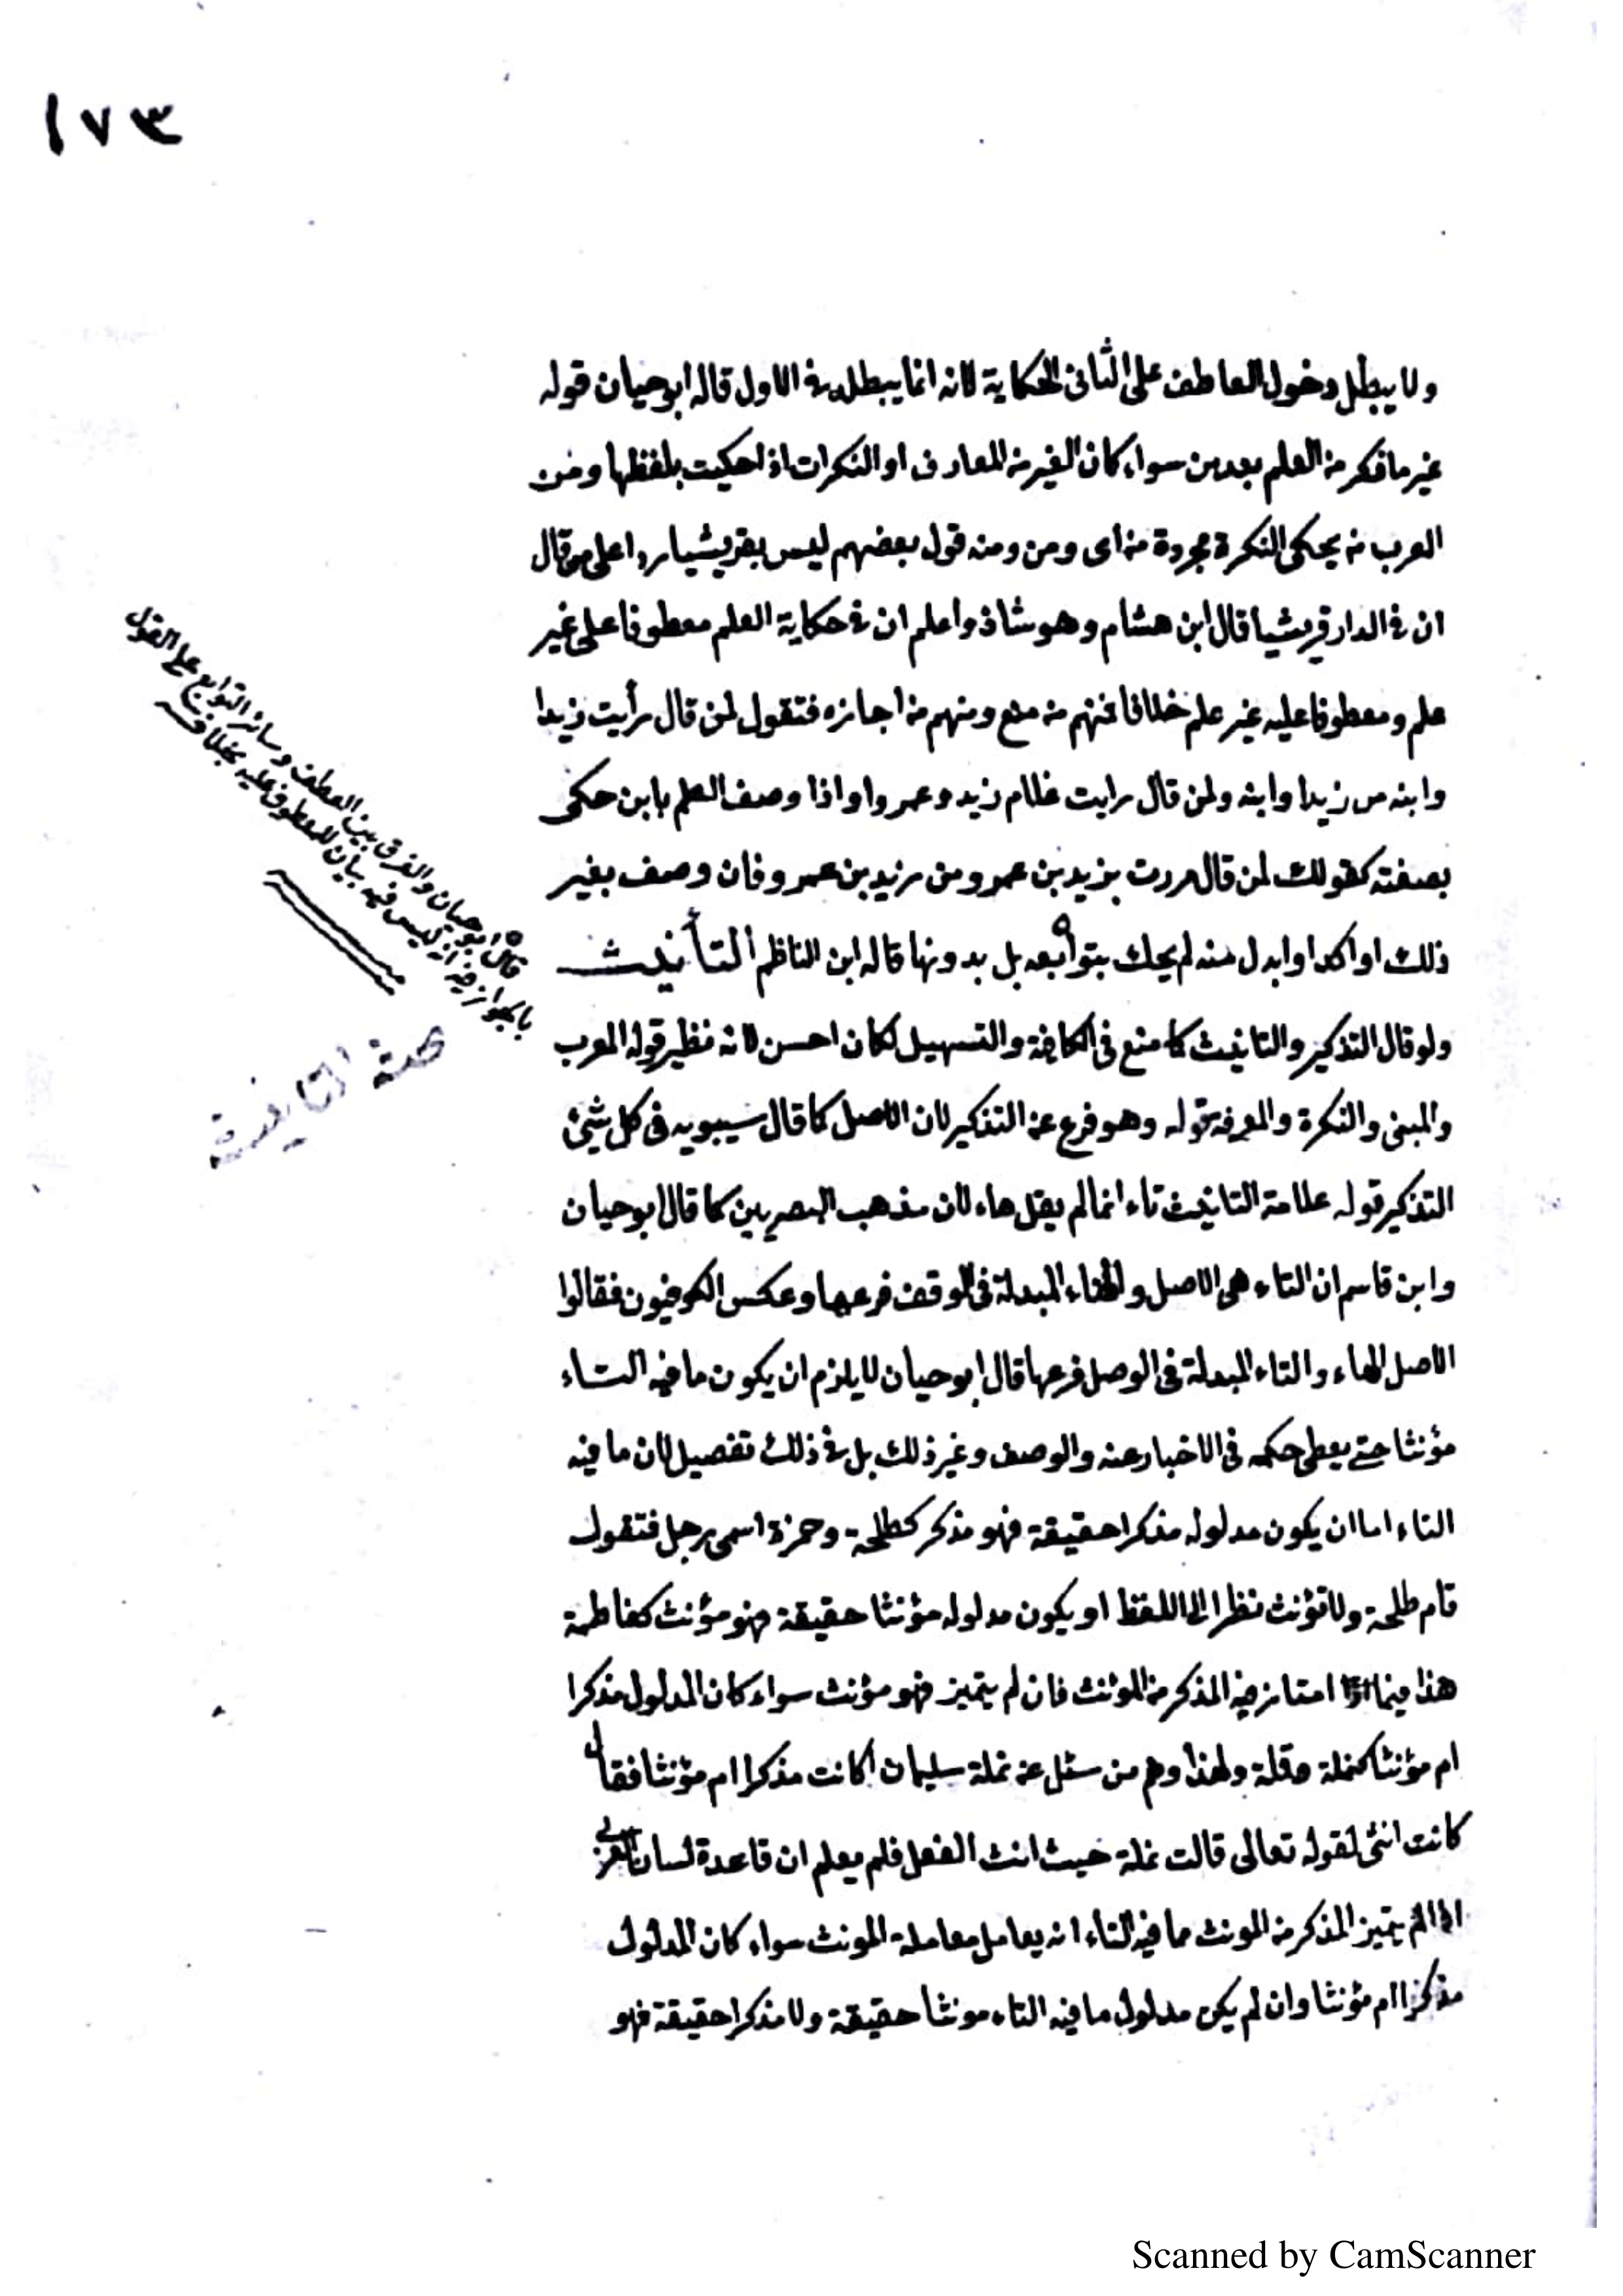 ١٧٣
ولا يبطل دخول العاطف على الثانى الحكاية لانه انما يبطله فى الاول قاله ابوحيان قوله
غير ما ذكر من العلم بعد من سواء كان الغير من المعارف او النكرات اذا حكيت بلفظها ومن
العرب من يحكى النكرة مجردة من اى ومن ومنه قول بعضهم ليس بقريشيا ردا على من قال
ان فى الدار قريشيا قال ابن هشام وهو شاذ واعلم ان فى حكاية العلم معطوفا على غير
علم ومعطوفا عليه غير علم خلافا فمنهم من منع ومنهم من اجازه فتقول لمن قال رأيت زيدا
وابنه من زيدا وابنه ولمن قال رايت غلام زيد وعمروا واذا وصف العلم بابن حكى
بصفته كقولك لمن قال مررت بزيد بن عمرو من زيد بن عمرو فان وصف بغير
ذلك او اكد او ابدل منه لم يحك بتوابعه بل بدونها قاله ابن الناظم التأنيث
ولو قال التذكير والتانيث كما صنع فى الكافية والتسهيل لكان احسن لانه نظير قوله المعرب
والمبنى والنكرة والمعرفة قوله وهو فرع عن التذكير لان الاصل كما قال سيبويه فى كل شئ
التذكير قوله علامة التانيث تاء انما لم يقل هاء لان مذهب البصريين كما قال ابوحيان
وابن قاسم ان التاء هى الاصل والهاء المبدلة فى الوقف فرعها وعكس الكوفيون فقالوا
الاصل الهاء والتاء المبدلة فى الوصل فرعها قال ابوحيان لا يلزم ان يكون ما فيه التاء
مؤنثا حتى يعطى حكمه فى الاخبار عنه والوصف وغير ذلك بل فى ذلك تفصيل لان ما فيه
التاء اما ان يكون مدلوله مذكرا حقيقة فهو مذكر كطلحة وحمزة اسمى رجل فتقول
قام طلحة ولا تؤنث نظرا الى اللفظ او يكون مدلوله مؤنثا حقيقة فهو مؤنث كفاطمة
هذا فيما امتاز فيه المذكر من المؤنث فان لم يتميز فهو مؤنث سواء كان المدلول مذكرا
ام مؤنثا كنملة وقلة ولهذا وهم من سئل عن نملة سليمان اكانت مذكرا ام مؤنثا فقال
كانت انثى لقوله تعالى قالت نملة حيث انث الفعل فلم يعلم ان قاعدة لسان العرب
اذا لم يتميز المذكر من المونث مما فيه التاء انه يعامل معاملة المونث سواء كان المدلول
مذكرا ام مؤنثا وان لم يكن مدلول ما فيه التاء مونثا حقيقة ولا مذكرا حقيقة فهو
قال ابوحيان والفرق بين العطف وسائر التوابع على القول
بالجواز فيه انه ليس فيه بيان للمعطوف عليه بخلاف
Scanned by CamScanner